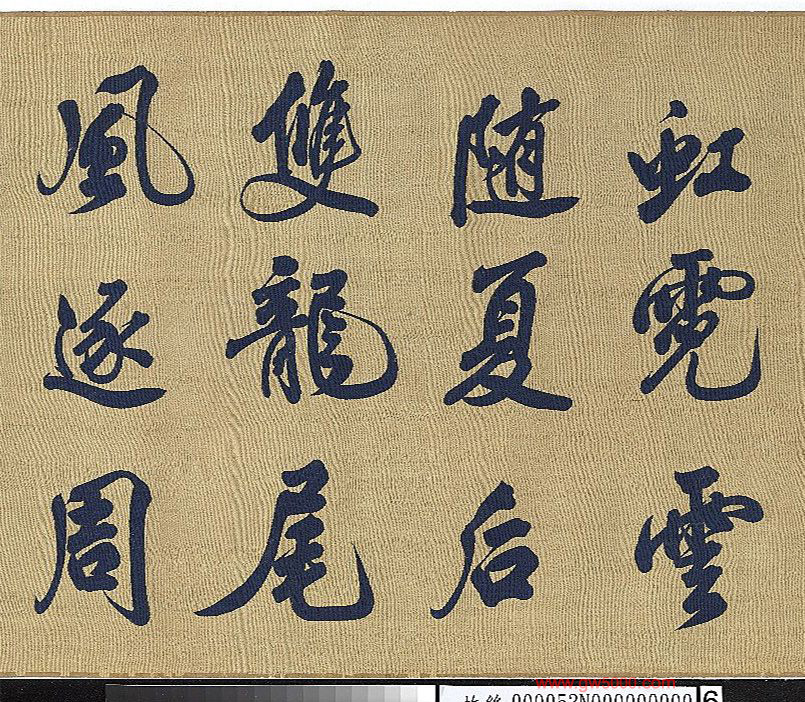 虹霓雲
随夏后
雙龍尾
風逐周
www.gw5000.com
故絲000053N000000000
6